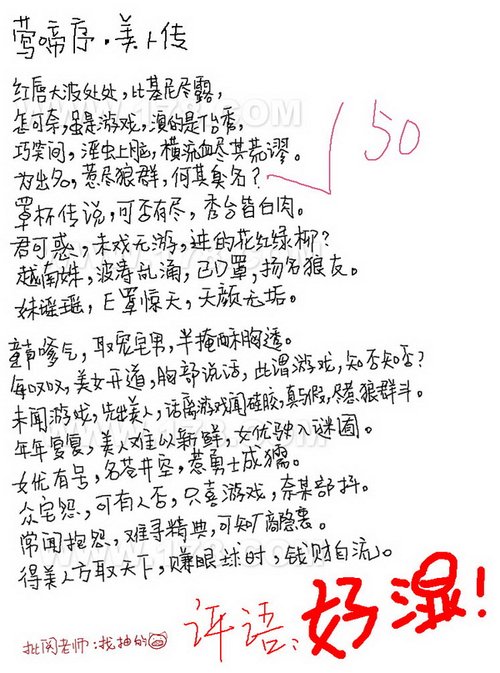 莺啼序·美人传
红唇大波处处，比基尼尽露，
怎可奈，虽是游戏，演的是伦秀，
巧笑间，淫虫上脑，横流血尽其荒谬。
为出名，惹尽狼群，何其臭名？
√50
罩杯传说，可否有尽，秀台皆白肉。
君可惑，未戏无游，进的花红绿柳？
越南妹，波涛乱涌，已D罩，扬名狼友。
妹瑶瑶，E罩惊天，天颜无垢。
童声嗲气，取宠宅男，半掩酥胸透。
每叹叹，美女开道，胸部说话，此谓游戏，知否知否？
未闻游戏，先出美人，话离游戏闻硅胶，真与假，尽惹狼群斗。
年年复复，美人难以新鲜，女优驶入谜圈。
女优有号，名苍井空，惹勇士成猛。
众宅怨，可有人否，只喜游戏，奈某部抖。
常闻抱怨，难寻精典，可知厂商隐衷。
得美人方取天下，赚眼球时，钱财自流。
评语：好湿！
批阅老师：找抽的
WWW.178.COM